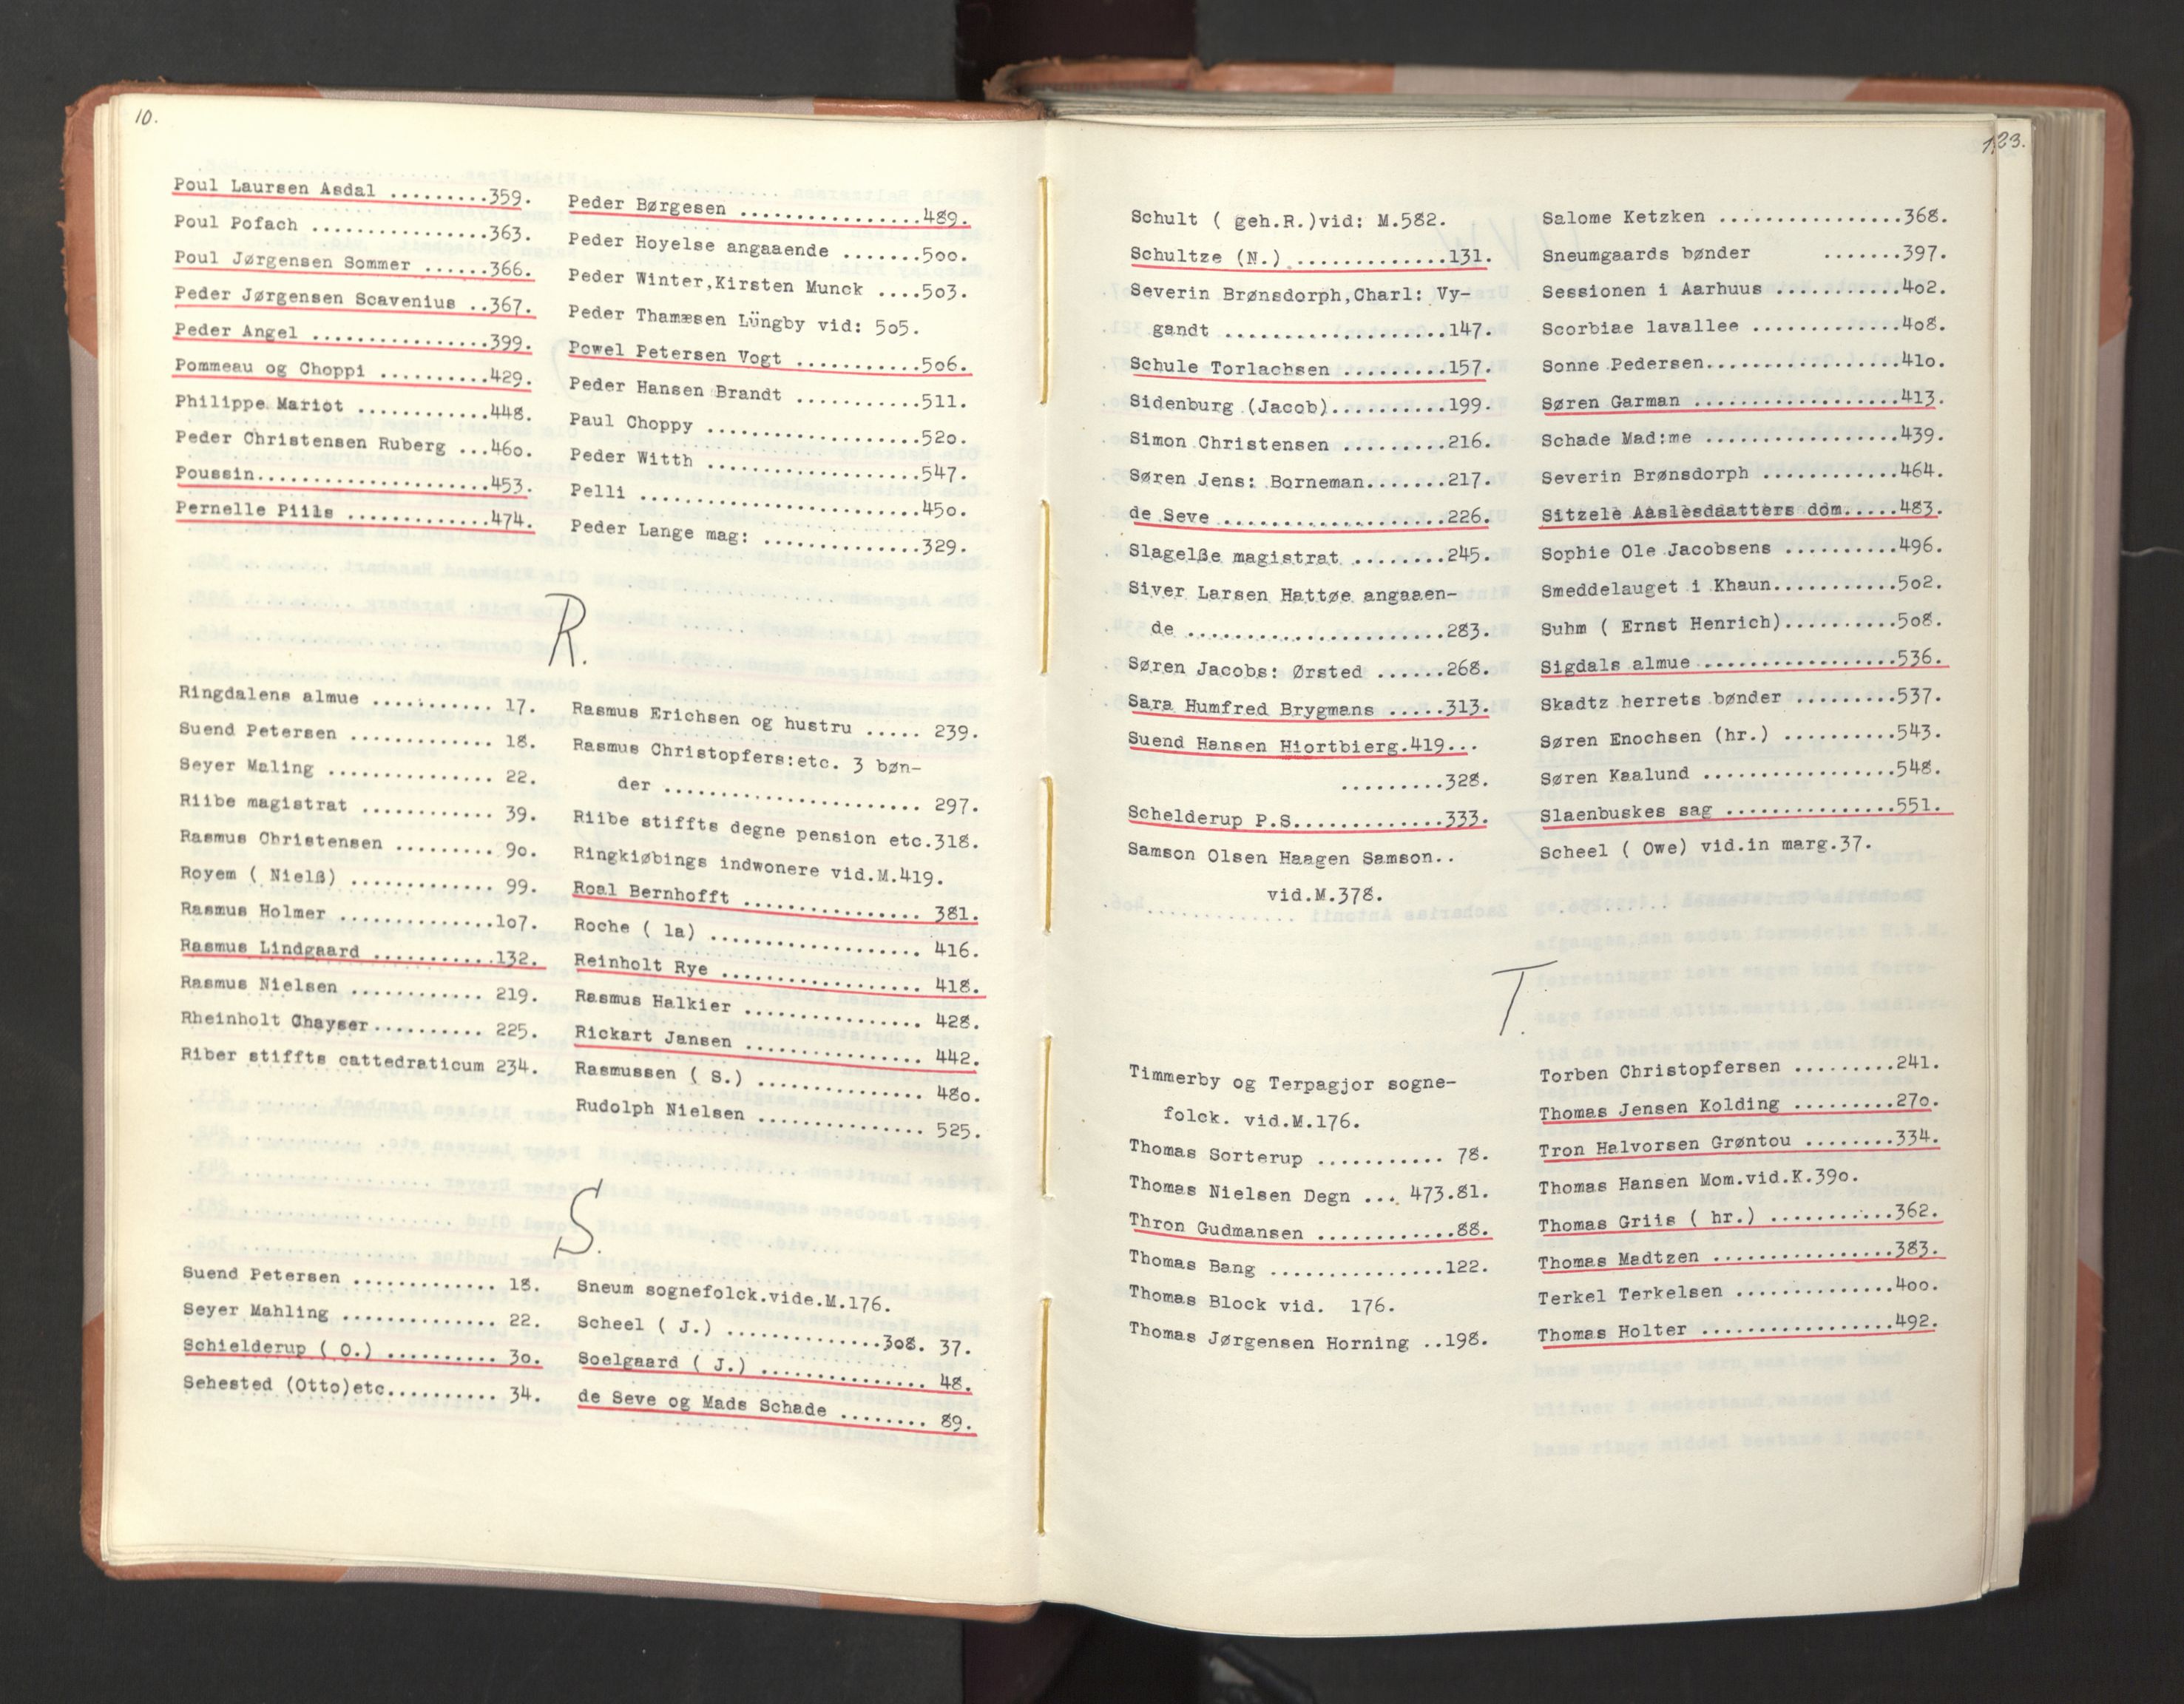 10.
Poul Laursen Asdal .........359.
Poul Pofach ................363.
Poul Jørgensen Sommer ......366.
Peder Jørgensen Scavenius ..367.
Peder Angel ................399.
Pommeau og Choppi ..........429.
Philippe Mariot ............448.
Peder Christensen Ruberg ...46o.
Poussin.....................453.
Pernelle Piils .............474.
Peder Børgesen ................489.
Peder Hoyelse angaaende .......5oo.
Peder Winter,Kirsten Munck ....5o3.
Peder Thamæsen Lüngby vid: 5o5.
Powel Petersen Vogt ...........5o6.
Peder Hansen Brandt ...........511.
Paul Choppy ...................52o.
Peder Witth ...................547.
Pelli .........................45o.
Peder Lange mag: ..............329.
R.
Ringdalens almue ........... 17.
Suend Petersen ............. 18.
Seyer Maling ............... 22.
Riibe magistrat ............ 39.
Rasmus Christensen ......... 9o.
Royem ( Nielß) ............. 99.
Rasmus Holmer ..............1o7.
Rasmus Lindgaard ...........132.
Rasmus Nielsen ............ 219.
Rheinholt Chayser.......... 225.
Riber stiffts cattedraticum 234.
Rasmus Erichsen og hustru ..... 239.
Rasmus Christopfers:etc. 3 bøn-
der ....................... 297.
Riibe stiffts degne pension etc.318.
Ringkiøbings indwonere vid.M.419.
Roal Bernhofft ................ 381.
Roche ( la) ................... 416.
Reinholt Rye .................. 418.
Rasmus Halkier ................ 428.
Rickart Jansen ................ 442.
Rasmussen ( S.) ............... 48o.
Rudolph Nielsen ............... 525.
S.
Suend Petersen ............. 18.
Seyer Mahling .............. 22.
Schielderup ( O.) .......... 3o.
Sehested (Otto)etc.......... 34.
Sneum sognefolck.vide.M.176.
Scheel ( J.) ..............3o8. 37.
Soelgaard ( J.) ............... 48.
de Seve og Mads Schade ........ 89.
123.
Schult ( geh.R.)vid: M.582.
Schultze (N.) ..............131.
Severin Brønsdorph,Charl: Vy-
gandt ....................147.
Schule Torlachsen .........157.
Sidenburg (Jacob)..........199.
Simon Christensen .........216.
Søren Jens: Borneman.......217.
de Seve ...................226.
Slagelße magistrat ........245.
Siver Larsen Hattøe angaaen-
de .......................283.
Søren Jacobs: Ørsted ......268.
Sara Humfred Brygmans .....313.
Suend Hansen Hiortbierg.419...
.........328.
Schelderup P.S.............333.
Samson Olsen Haagen Samson..
vid.M.378.
Salome Ketzken ................368.
Sneumgaards bønder .......397.
Sessionen i Aarhuus ...........4o2.
Scorbiae lavallee .............4o8.
Sonne Pedersen.................41o.
Søren Garman ..................413.
Schade Mad:me .................439.
Severin Brønsdorph ............464.
Sitzele Aaslesdaatters dom.....483.
Sophie Ole Jacobsens ..........496.
Smeddelauget i Khaun...........5o2.
Suhm ( Ernst Henrich)..........5o8.
Sigdals almue .................536.
Skadtz herrets bønder .........537.
Søren Enochsen (hr.) ..........543.
Søren Kaalund .................548.
Slaenbuskes sag ...............551.
Scheel ( Owe) vid.in marg.37.
T.
Timmerby og Terpagjor sogne-
folck. vid.M.176.
Thomas Sorterup ........... 78.
Thomas Nielsen Degn ... 473.81.
Thron Gudmansen ............88.
Thomas Bang ...............122.
Thomas Block vid. 176.
Thomas Jørgensen Horning ..198.
Torben Christopfersen .........241.
Thomas Jensen Kolding .........27o.
Tron Halvorsen Grøntou ........334.
Thomas Hansen Mom.vid.K.39o.
Thomas Griis ( hr.) ...........362.
Thomas Madtzen ................383.
Terkel Terkelsen ..............4oo.
Thomas Holter .................492.